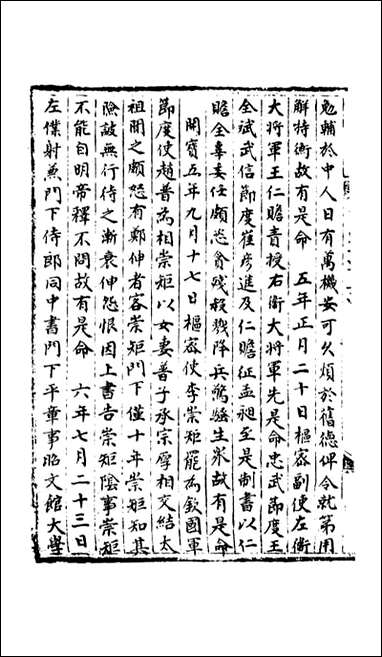 勉輔於中人日有萬機安可久煩於舊德俾令就第用
解持衡故有是命　五年正月二十日樞密副使左衛
大將軍王仁贍責授右衛大將軍先是命忠武節度王
全斌武信節度崔彥進及仁贍征孟昶至是制書以仁
贍全辜委任頗恣貪殘殺戮降兵驚騷生眾故有是命
開寶五年九月十七日樞密使李崇矩罷為鎮國軍
節度使趙普為相崇矩以女妻普子承宗厚相交結太
祖聞之頗怒有鄭伸者客崇矩門下僅十年崇矩知其
險詖無行待之漸衰伸怨恨因上書告崇矩陰事崇矩
不能自明帝釋不問故有是命　六年七月二十三日
左僕射兼門下侍郎同中書門下平章事昭文館大學